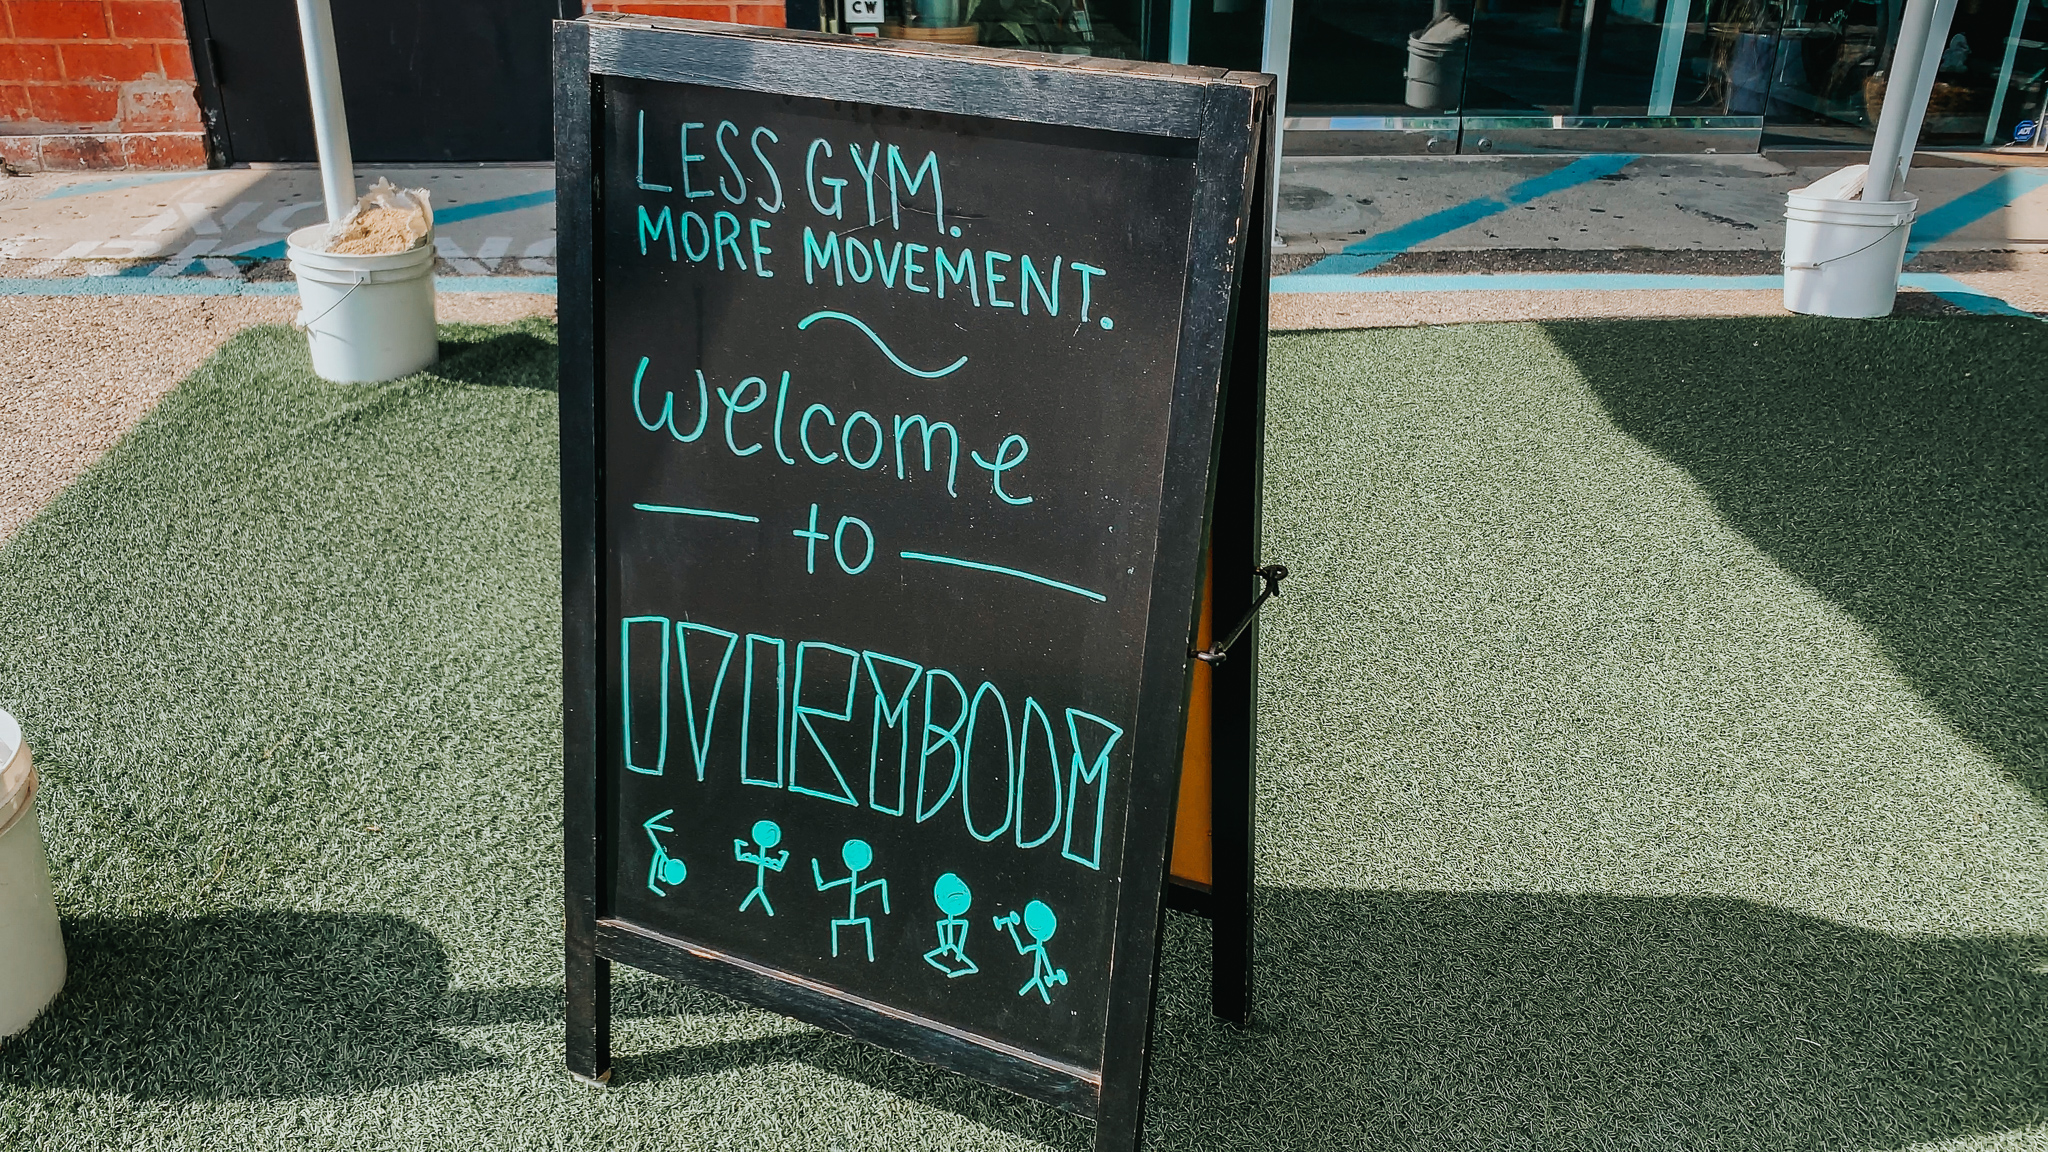 LESS GYM.
MORE MOVEMENT.
Welcome
to
EVERYBODY
CW
NO
PARKING
ADT